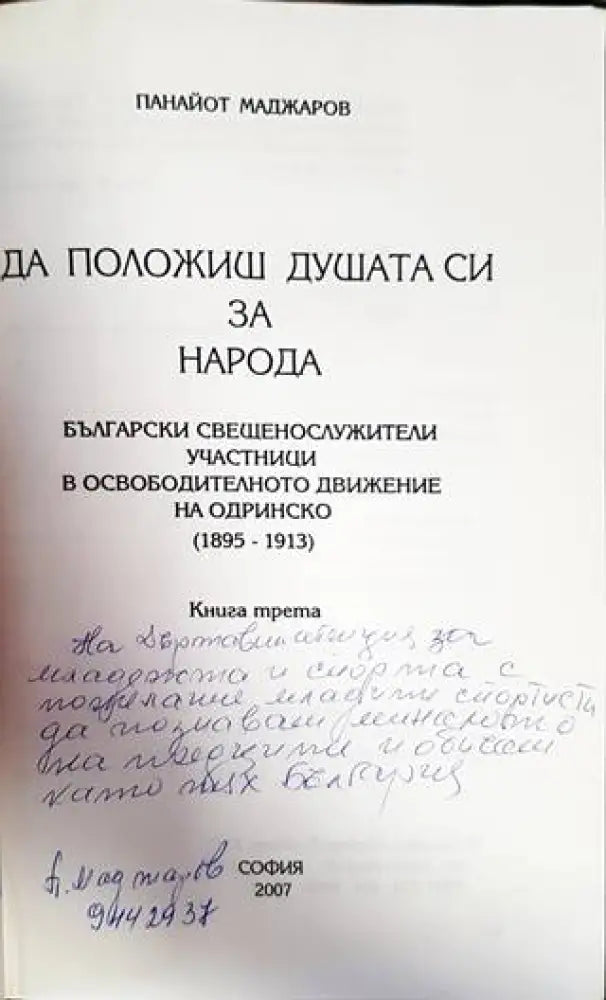 ПАНАЙОТ МАДЖАРОВ
ДА ПОЛОЖИШ ДУШАТА СИ
ЗА
НАРОДА
БЪЛГАРСКИ СВЕЩЕНОСЛУЖИТЕЛИ
УЧАСТНИЦИ
В ОСВОБОДИТЕЛНОТО ДВИЖЕНИЕ
НА ОДРИНСКО
(1895 - 1913)
Книга трета
На Държавна агенция за
младежта и спорта с
пожелание младите спортисти
да познават миналото
на предците и обичат
като тях България
П. Маджаров
9442937
СОФИЯ
2007